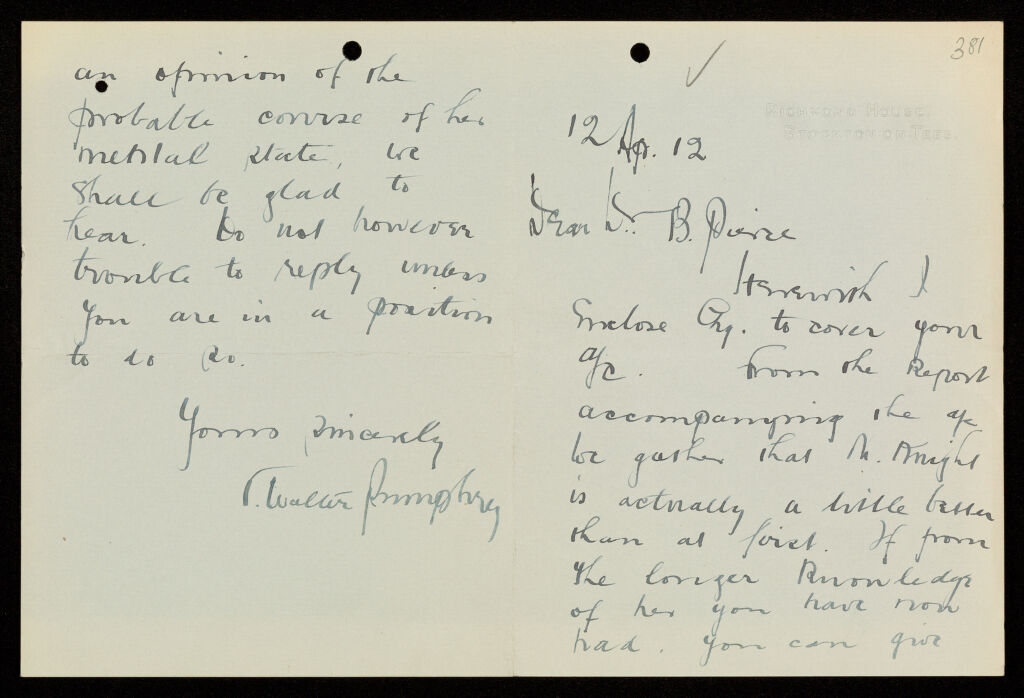 381
RICHMOND HOUSE,
STOCKTON ON TEES.
12 Ap. 12
Dear Dr. B. Pierce
Herewith I
Enclose Chq. to cover your
a/c. From the Report
accompanying the a/c
we gather that M. Knight
is actually a little better
than at first. If from
the longer knowledge
of her you have now
had, you can give
an opinion of the
probable course of her
mental state, we
shall be glad to
hear. Do not however
trouble to reply unless
you are in a position
to do so.
Yours sincerely
T. Walter Pumphrey